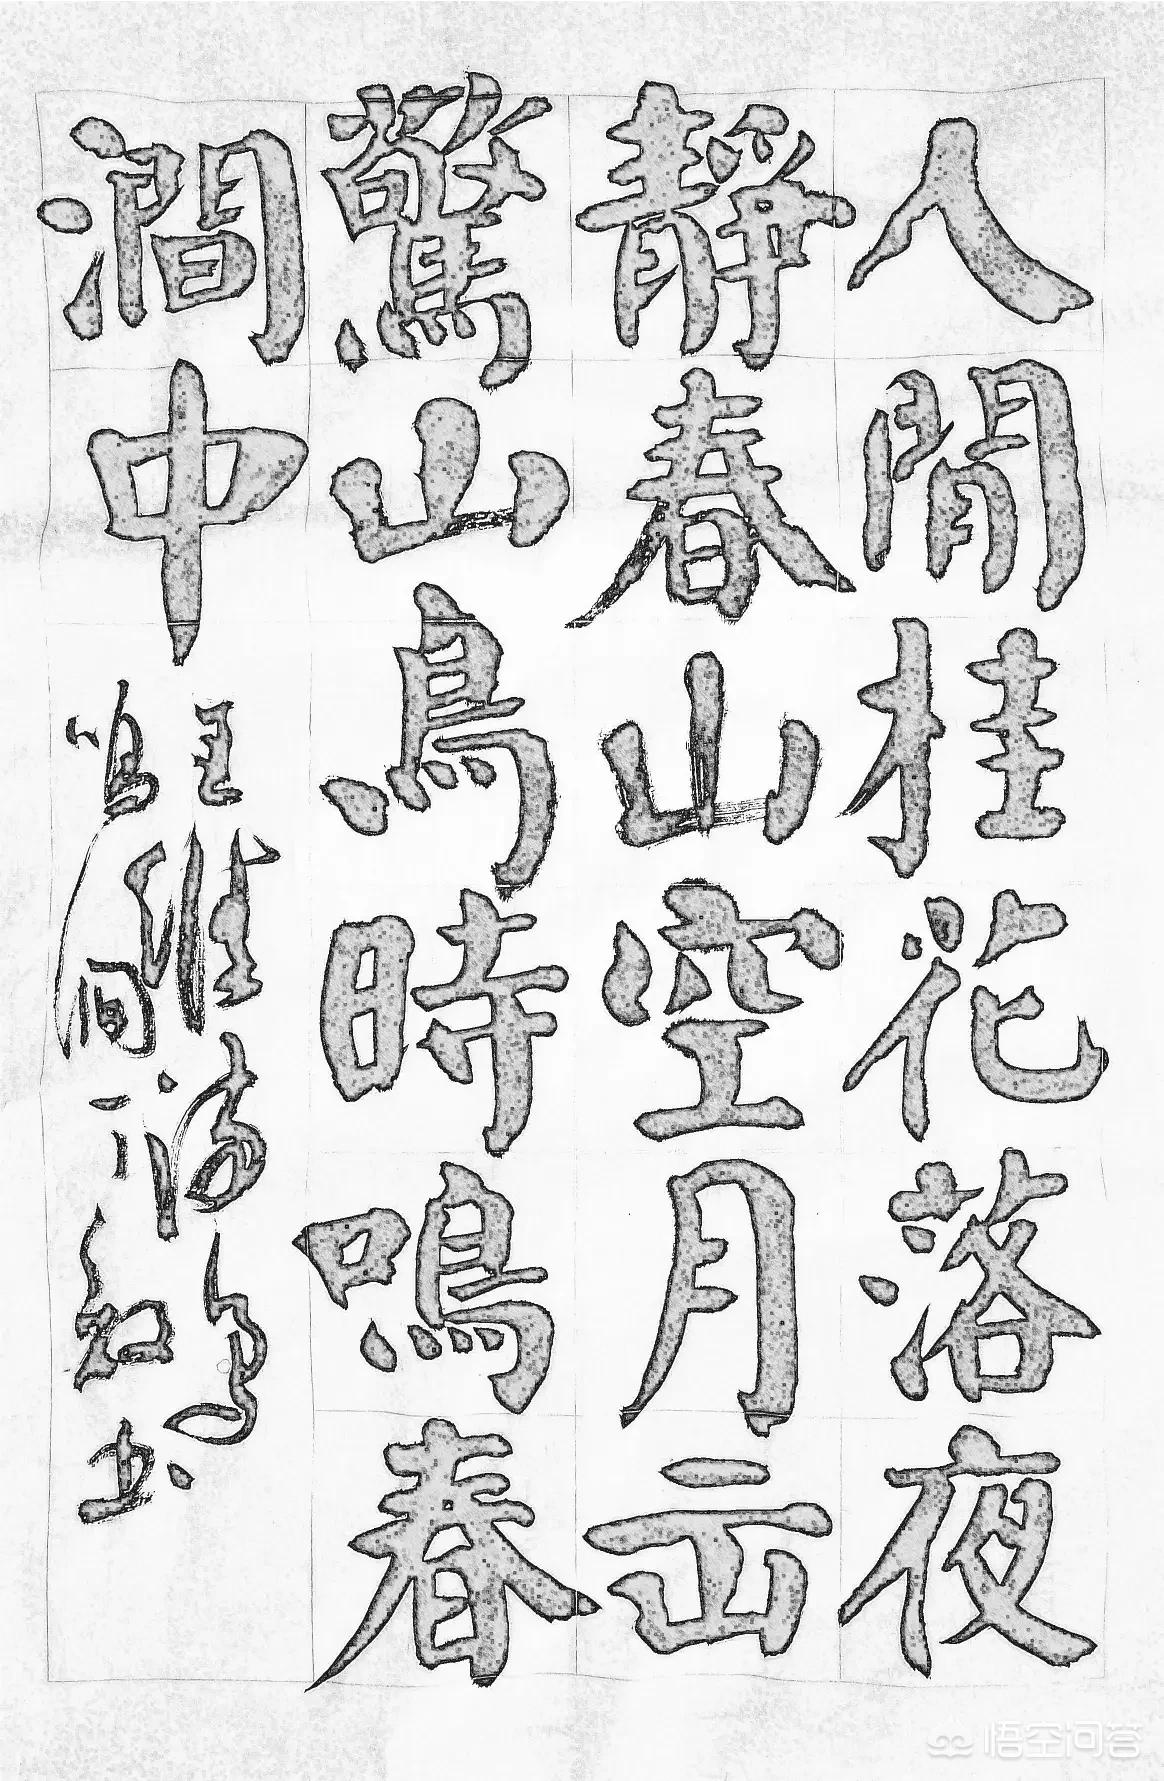 人閒桂花落夜
靜春山空月出
驚山鳥時鳴春
澗中
王維诗鸟
鸣涧 书
悟空问答